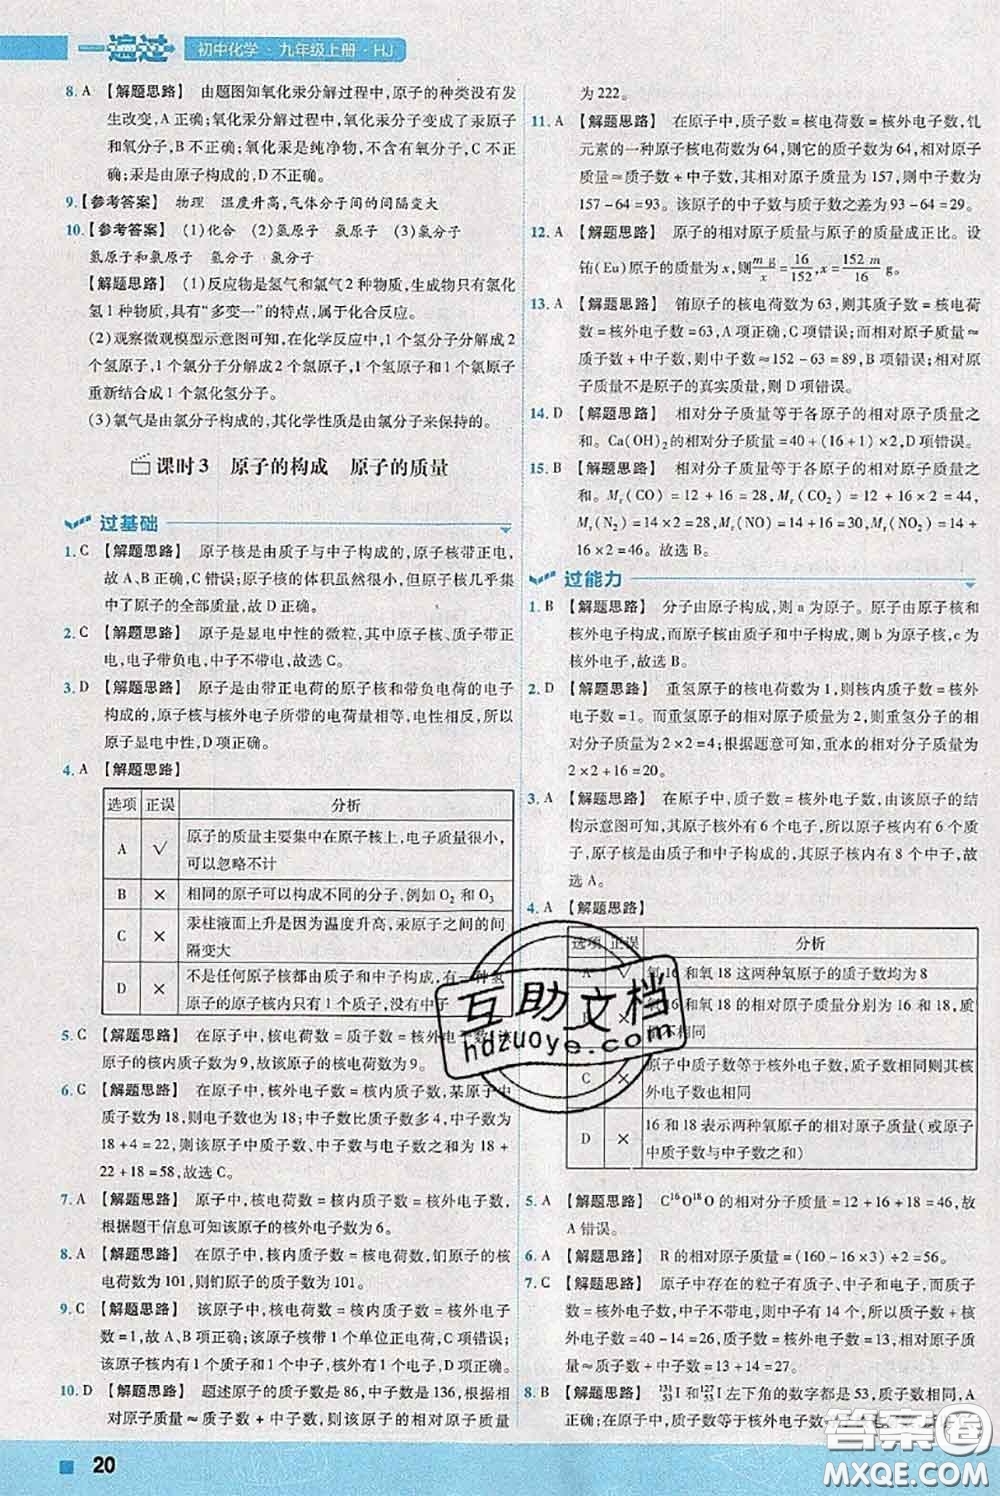 一遍过 初中化学·九年级上册·HJ
8. A 【解题思路】 由题图知氧化汞分解过程中,原子的种类没有发
生改变,A正确;氧化汞分解过程中,氧化汞分子变成了汞原子
和氧分子,B不正确;氧化汞是纯净物,不含有氧分子,C不正
确;汞是由原子构成的,D不正确。
9. 【参考答案】 物理 温度升高,气体分子间的间隔变大
10. 【参考答案】 (1)化合 (2)氢原子 氯原子 (3)氯化氢
氢原子和氯原子 氢分子 氯分子
【解题思路】 (1)反应物是氢气和氯气2种物质,生成物只有氯化
氢1种物质,具有“多变一”的特点,属于化合反应。
(2)观察微观模型示意图可知,在化学反应中,1个氢分子分解成2
个氢原子,1个氯分子分解成2个氯原子,1个氢原子和1个氯原子
重新结合成1个氯化氢分子。
(3)氯气是由氯分子构成的,其化学性质是由氯分子来保持的。
课时3 原子的构成 原子的质量
过基础
1. C 【解题思路】 原子核是由质子与中子构成的,原子核带正电,
故A、B正确,C错误;原子核的体积虽然很小,但原子核几乎集
中了原子的全部质量,故D正确。
2. C 【解题思路】 原子是显电中性的微粒,其中原子核、质子带正
电,电子带负电,中子不带电,故选C。
3. D 【解题思路】 原子是由带正电荷的原子核和带负电荷的电子
构成的,原子核与核外电子所带的电荷量相等,电性相反,所以
原子显电中性,D项正确。
4. A 【解题思路】
选项 正误 分析
A √ 原子的质量主要集中在原子核上,电子质量很小,
可以忽略不计
B × 相同的原子可以构成不同的分子,例如O₂和O₃
C × 汞柱液面上升是因为温度升高,汞原子之间的间
隔变大
D × 不是任何原子核都由质子和中子构成,有一种氢
原子的原子核内只有1个质子,没有中子
5. C 【解题思路】 在原子中,核电荷数=质子数=核外电子数,
原子的核内质子数为9,故该原子的核电荷数为9。
6. C 【解题思路】 在原子中,核外电子数=核内质子数,某原子中
质子数为18,则电子数也为18;中子数比质子数多4,中子数为
18+4=22,则该原子中质子数、中子数与电子数之和为18+
22+18=58,故选C。
7. A 【解题思路】 原子中,核电荷数=核内质子数=核外电子数,
根据题干信息可知该原子的核外电子数为6。
8. A 【解题思路】 在原子中,核内质子数=核电荷数,钔原子的核
电荷数为101,则钔原子的质子数为101。
9. C 【解题思路】 该原子中,核电荷数=核内质子数=核外电子
数=1,故A、B项正确;该原子核带1个单位正电荷,C项错误;
该原子核内有1个质子和1个中子,D项正确。
10. D 【解题思路】 题述原子的质子数是86,中子数是136,根据相
对原子质量≈质子数+中子数,则该原子的相对原子质量
为222。
11. A 【解题思路】 在原子中,质子数=核电荷数=核外电子数,钆
元素的一种原子核电荷数为64,则它的质子数为64,又因相对
原子质量≈质子数+中子数,其相对原子质量为157,则中子数为
157-64=93。该原子的中子数与质子数之差为93-64=29。
12. A 【解题思路】 原子的相对原子质量与原子的质量成正比。设
铕(Eu)原子的质量为x,则m g/x=16/152,x=152 m/16 g。
13. A 【解题思路】 铕原子的核电荷数为63,则其质子数=核电荷
数=核外电子数=63,A项正确,C项错误;而相对原子质量≈
质子数+中子数,则中子数≈152-63=89,B项错误;相对原
子质量不是原子的真实质量,D项错误。
14. D 【解题思路】 相对分子质量等于各原子的相对原子质量之
和。Ca(OH)₂的相对分子质量=40+(16+1)×2,D项错误。
15. B 【解题思路】 相对分子质量等于各原子的相对原子质量之
和。Mᵣ(CO)=12+16=28,Mᵣ(CO₂)=12+16×2=44,
Mᵣ(N₂)=14×2=28,Mᵣ(NO)=14+16=30,Mᵣ(NO₂)=14+
16×2=46。故选B。
过能力
1. B 【解题思路】 分子由原子构成,则a为原子。原子由原子核和
核外电子构成,而原子核由质子和中子构成,则b为原子核,c为
核外电子,故选B。
2. D 【解题思路】 重氢原子的核电荷数为1,则核内质子数=核外
电子数=1。而重氢原子的相对原子质量为2,则重氢分子的相对
分子质量为2×2=4;根据题意可知,重水的相对分子质量为
2×2+16=20。
3. A 【解题思路】 在原子中,质子数=核外电子数,由该原子的结
构示意图可知,其原子核外有6个电子,所以原子核内有6个质
子,原子核是由质子和中子构成的,其原子核内有8个中子,故
选A。
4. A 【解题思路】
选项 正误 分析
A √ 氧16和氧18这两种氧原子的质子数均为8
B × 氧16和氧18的相对原子质量分别为16和18,质
不相同
C × 原子中质子数等于核外电子数,质子数相同,则核
外电子数也相同
D × 16和18表示两种氧原子的相对原子质量(或原子
中质子数与中子数之和)
5. A 【解题思路】 C¹⁶O¹⁸O的相对分子质量=12+16+18=46,故
A错误。
6. A 【解题思路】 R的相对原子质量=(160-16×3)÷2=56。
7. C 【解题思路】 原子中存在的粒子有质子、中子和电子,而质子
数=核外电子数,中子不带电,则中子有14个,所以质子数+核
外电子数=40-14=26,质子数=核外电子数=13,相对原子质
量≈质子数+中子数=13+14=27。
8. B 【解题思路】 ¹³¹₅₃I和¹²⁷₅₃I左下角的数字都是53,质子数相同,A
正确;在原子中,质子数等于核外电子数,
20
互助文档
hdzuoye.com
答案圈
MXQE.COM